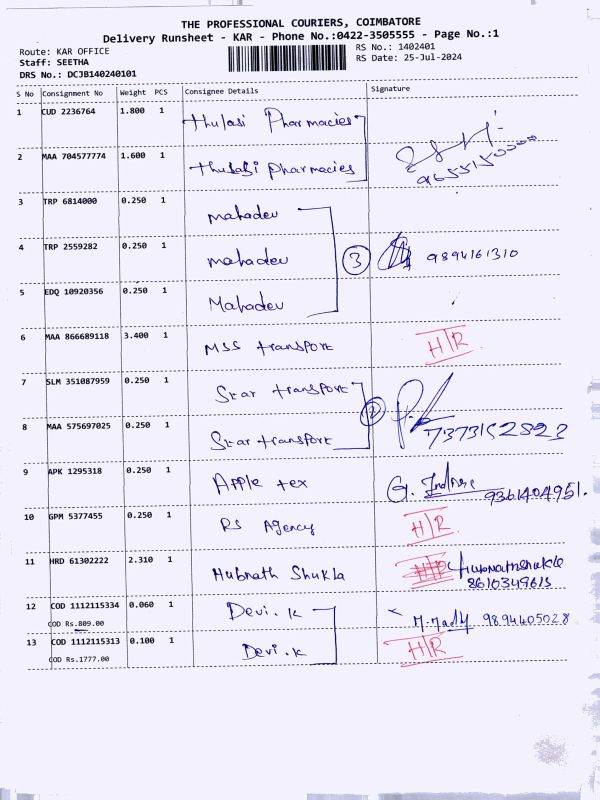 THE PROFESSIONAL COURIERS, COIMBATORE
Delivery Runsheet - KAR - Phone No.:0422-3505555 - Page No.:1
Route: KAR OFFICE
RS No.: 1402401
Staff: SEETHA
RS Date: 25-Jul-2024
DRS No.: DCJB140240101
S No Consignment No Weight PCS Consignee Details Signature
1 CUD 2236764 1.800 1 Thulasi Pharmacies
2 MAA 704577774 1.600 1 Thulasi Pharmacies
3 TRP 6814000 0.250 1 Mahadev
4 TRP 2559282 0.250 1 Mahadev 3 9894161310
5 EDQ 10920356 0.250 1 Mahadev
6 MAA 866689118 3.400 1 MSS transport H/R
7 SLM 351087959 0.250 1 Star transport
8 MAA 575697025 0.250 1 Star transport 2 7373152823
9 APK 1295318 0.250 1 Apple tex G. 9361404951.
10 GPM 5377455 0.250 1 RS Agency H/R
11 HRD 61302222 2.310 1 Hubnath Shukla
8610349613
12 COD 1112115334 0.060 1 Devi.k 9894405028
COD Rs.809.00
13 COD 1112115313 0.100 1 Devi.k H/R
COD Rs.1777.00